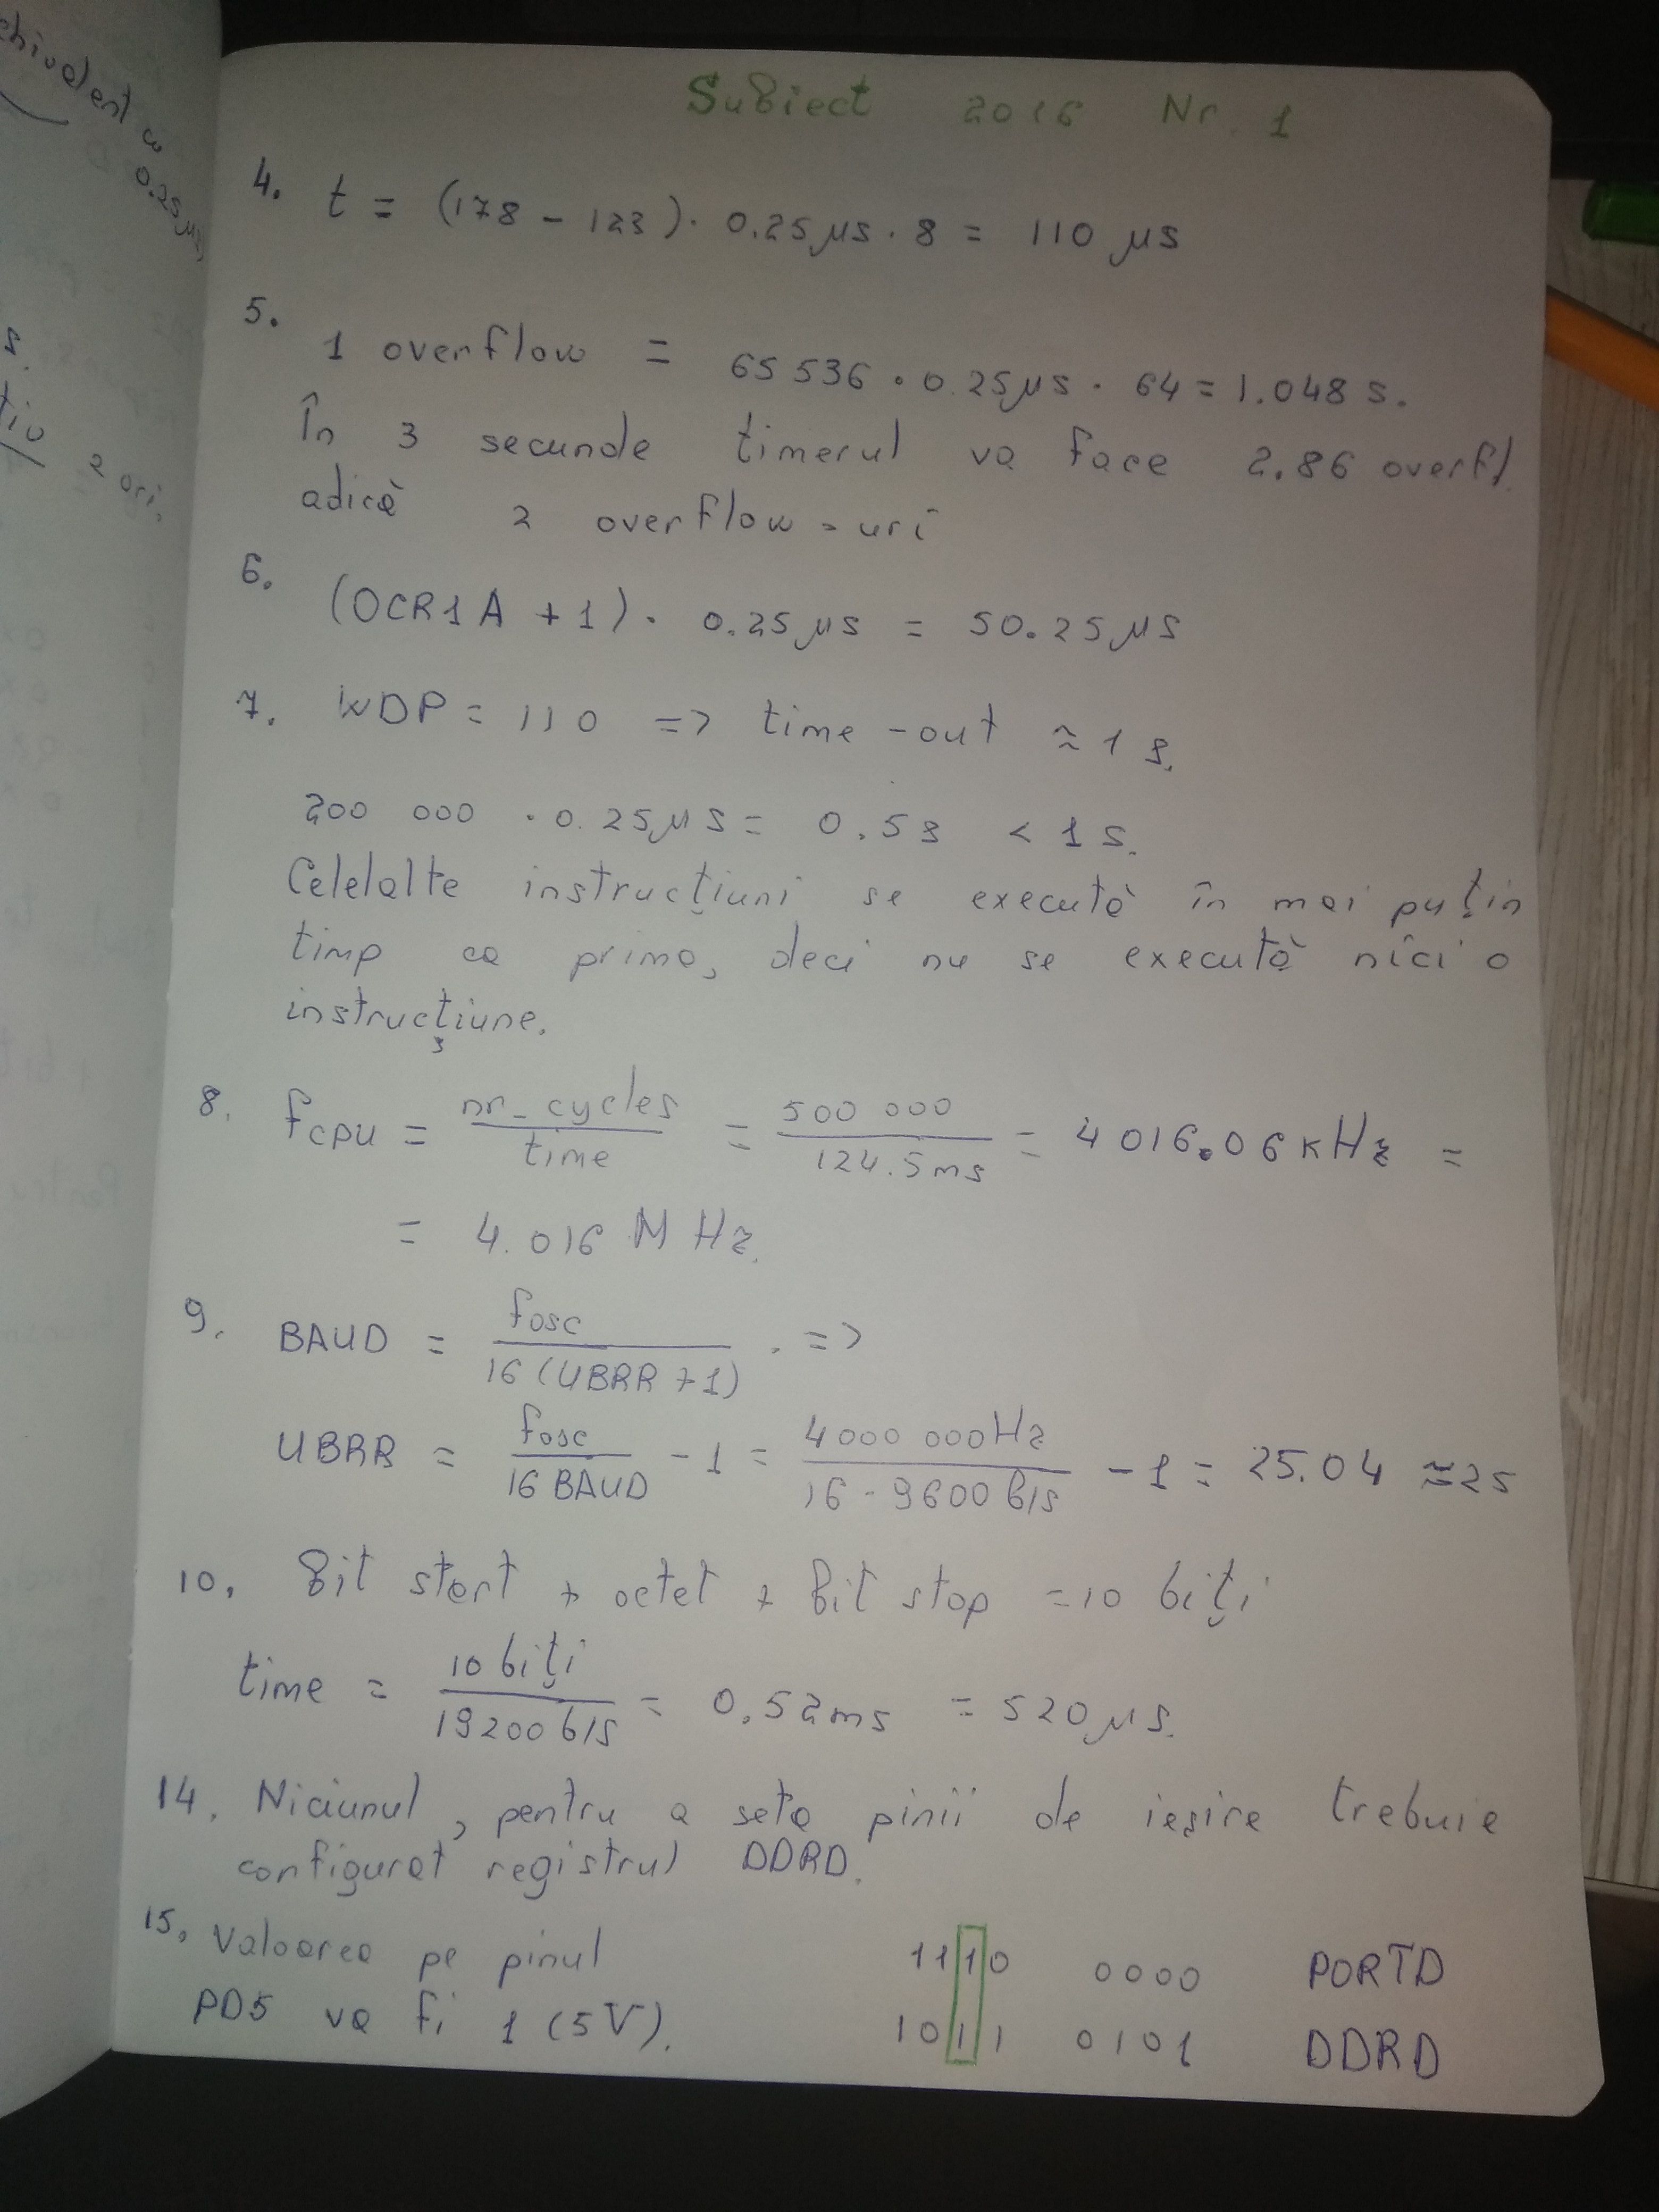 chivalent cu
0.25µs
s.
2 ori.
Subiect 2016 Nr. 1
4. t = (178 - 123) · 0.25µs · 8 = 110 µs
5. 1 overflow = 65 536 · 0.25µs · 64 = 1.048 s.
În 3 secunde timerul va face 2.86 overfl.
adică 2 overflow-uri
6. (OCR1A + 1) · 0.25µs = 50.25µs
7. WDP = 110 => time-out ≈ 1 s.
200 000 · 0.25µs = 0.5s < 1 s.
Celelalte instrucțiuni se execută în mai puțin
timp ca prima, deci nu se execută nîci o
instrucțiune.
8. fcpu = nr_cycles / time = 500 000 / 124.5ms = 4 016.06 kHz =
= 4.016 MHz.
9. BAUD = fosc / 16(UBRR+1) . =>
UBRR = fosc / 16 BAUD - 1 = 4000 000Hz / 16 · 9600 b/s - 1 = 25.04 ≈ 25
10. Bit start + octet + Bit stop = 10 biți
time = 10 biți / 19200 b/s = 0.52ms = 520µs.
14. Niciunul, pentru a seta pinii de ieșire trebuie
configurat registrul DDRD.
15. Valoarea pe pinul 1110 0000 PORTD
PD5 va fi 1 (5V). 1011 0101 DDRD